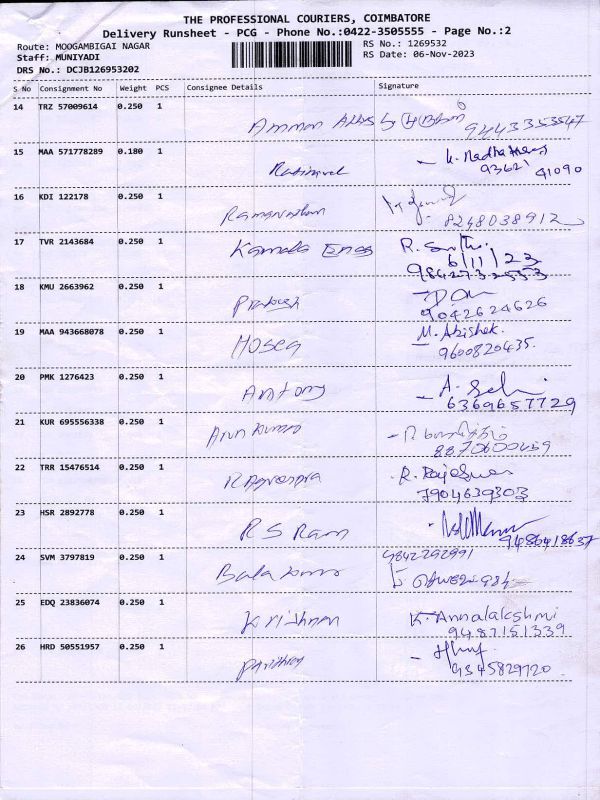 THE PROFESSIONAL COURIERS, COIMBATORE
Delivery Runsheet - PCG - Phone No.:0422-3505555 - Page No.:2
Route: MOOGAMBIGAI NAGAR RS No.: 1269532
Staff: MUNIYADI RS Date: 06-Nov-2023
DRS No.: DCJB126953202
S No Consignment No Weight PCS Consignee Details Signature
14 TRZ 57009614 0.250 1
Amman 9443353547
15 MAA 571778289 0.180 1
93621 41090
16 KDI 122178 0.250 1
8248038912
17 TVR 2143684 0.250 1 Kamala R.
6/11/23
9842732553
18 KMU 2663962 0.250 1
Prakash 9042624626
19 MAA 943668078 0.250 1 M. Abishek.
Hosea 9600820435.
20 PMK 1276423 0.250 1
Antony A. Selvi
6369657729
21 KUR 695556338 0.250 1
Arun Kumar
22 TRR 15476514 0.250 1 R. Rajeswari
7904639303
23 HSR 2892778 0.250 1
R S Ram 9486418637
24 SVM 3797819 0.250 1 9842292991
Bala Kumar
25 EDQ 23836074 0.250 1
Krishnan K. Annalakshmi
9487151339
26 HRD 50551957 0.250 1
9345829720